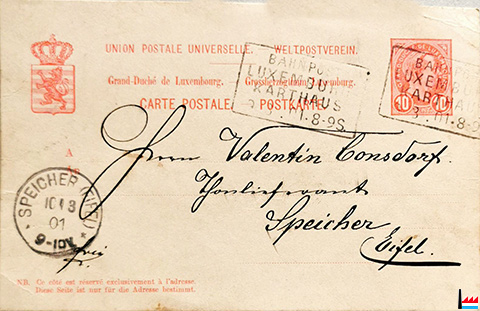 UNION POSTALE UNIVERSELLE. WELTPOSTVEREIN.
Grand-Duché de Luxembourg. Grossherzogtum Luxemburg.
CARTE POSTALE POSTKARTE
BAHNPOST
LUXEMBURG
KARTHAUS
BAHNP
LUXEMB
KARTHAUS
10 10
A
Herrn Valentin Consdorf.
Thonlieferant
Speicher
Eifel.
SPEICHER (EIFEL)
01
9-10V
frei
NB. Ce côté est réservé exclusivement à l'adresse.
Diese Seite ist nur für die Adresse bestimmt.